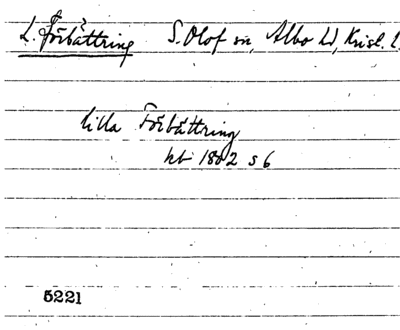 L. Förbättring S. Olof sn, Albo hd, Krist. l.
lilla Förbättring
hb 1802 s 6
5221